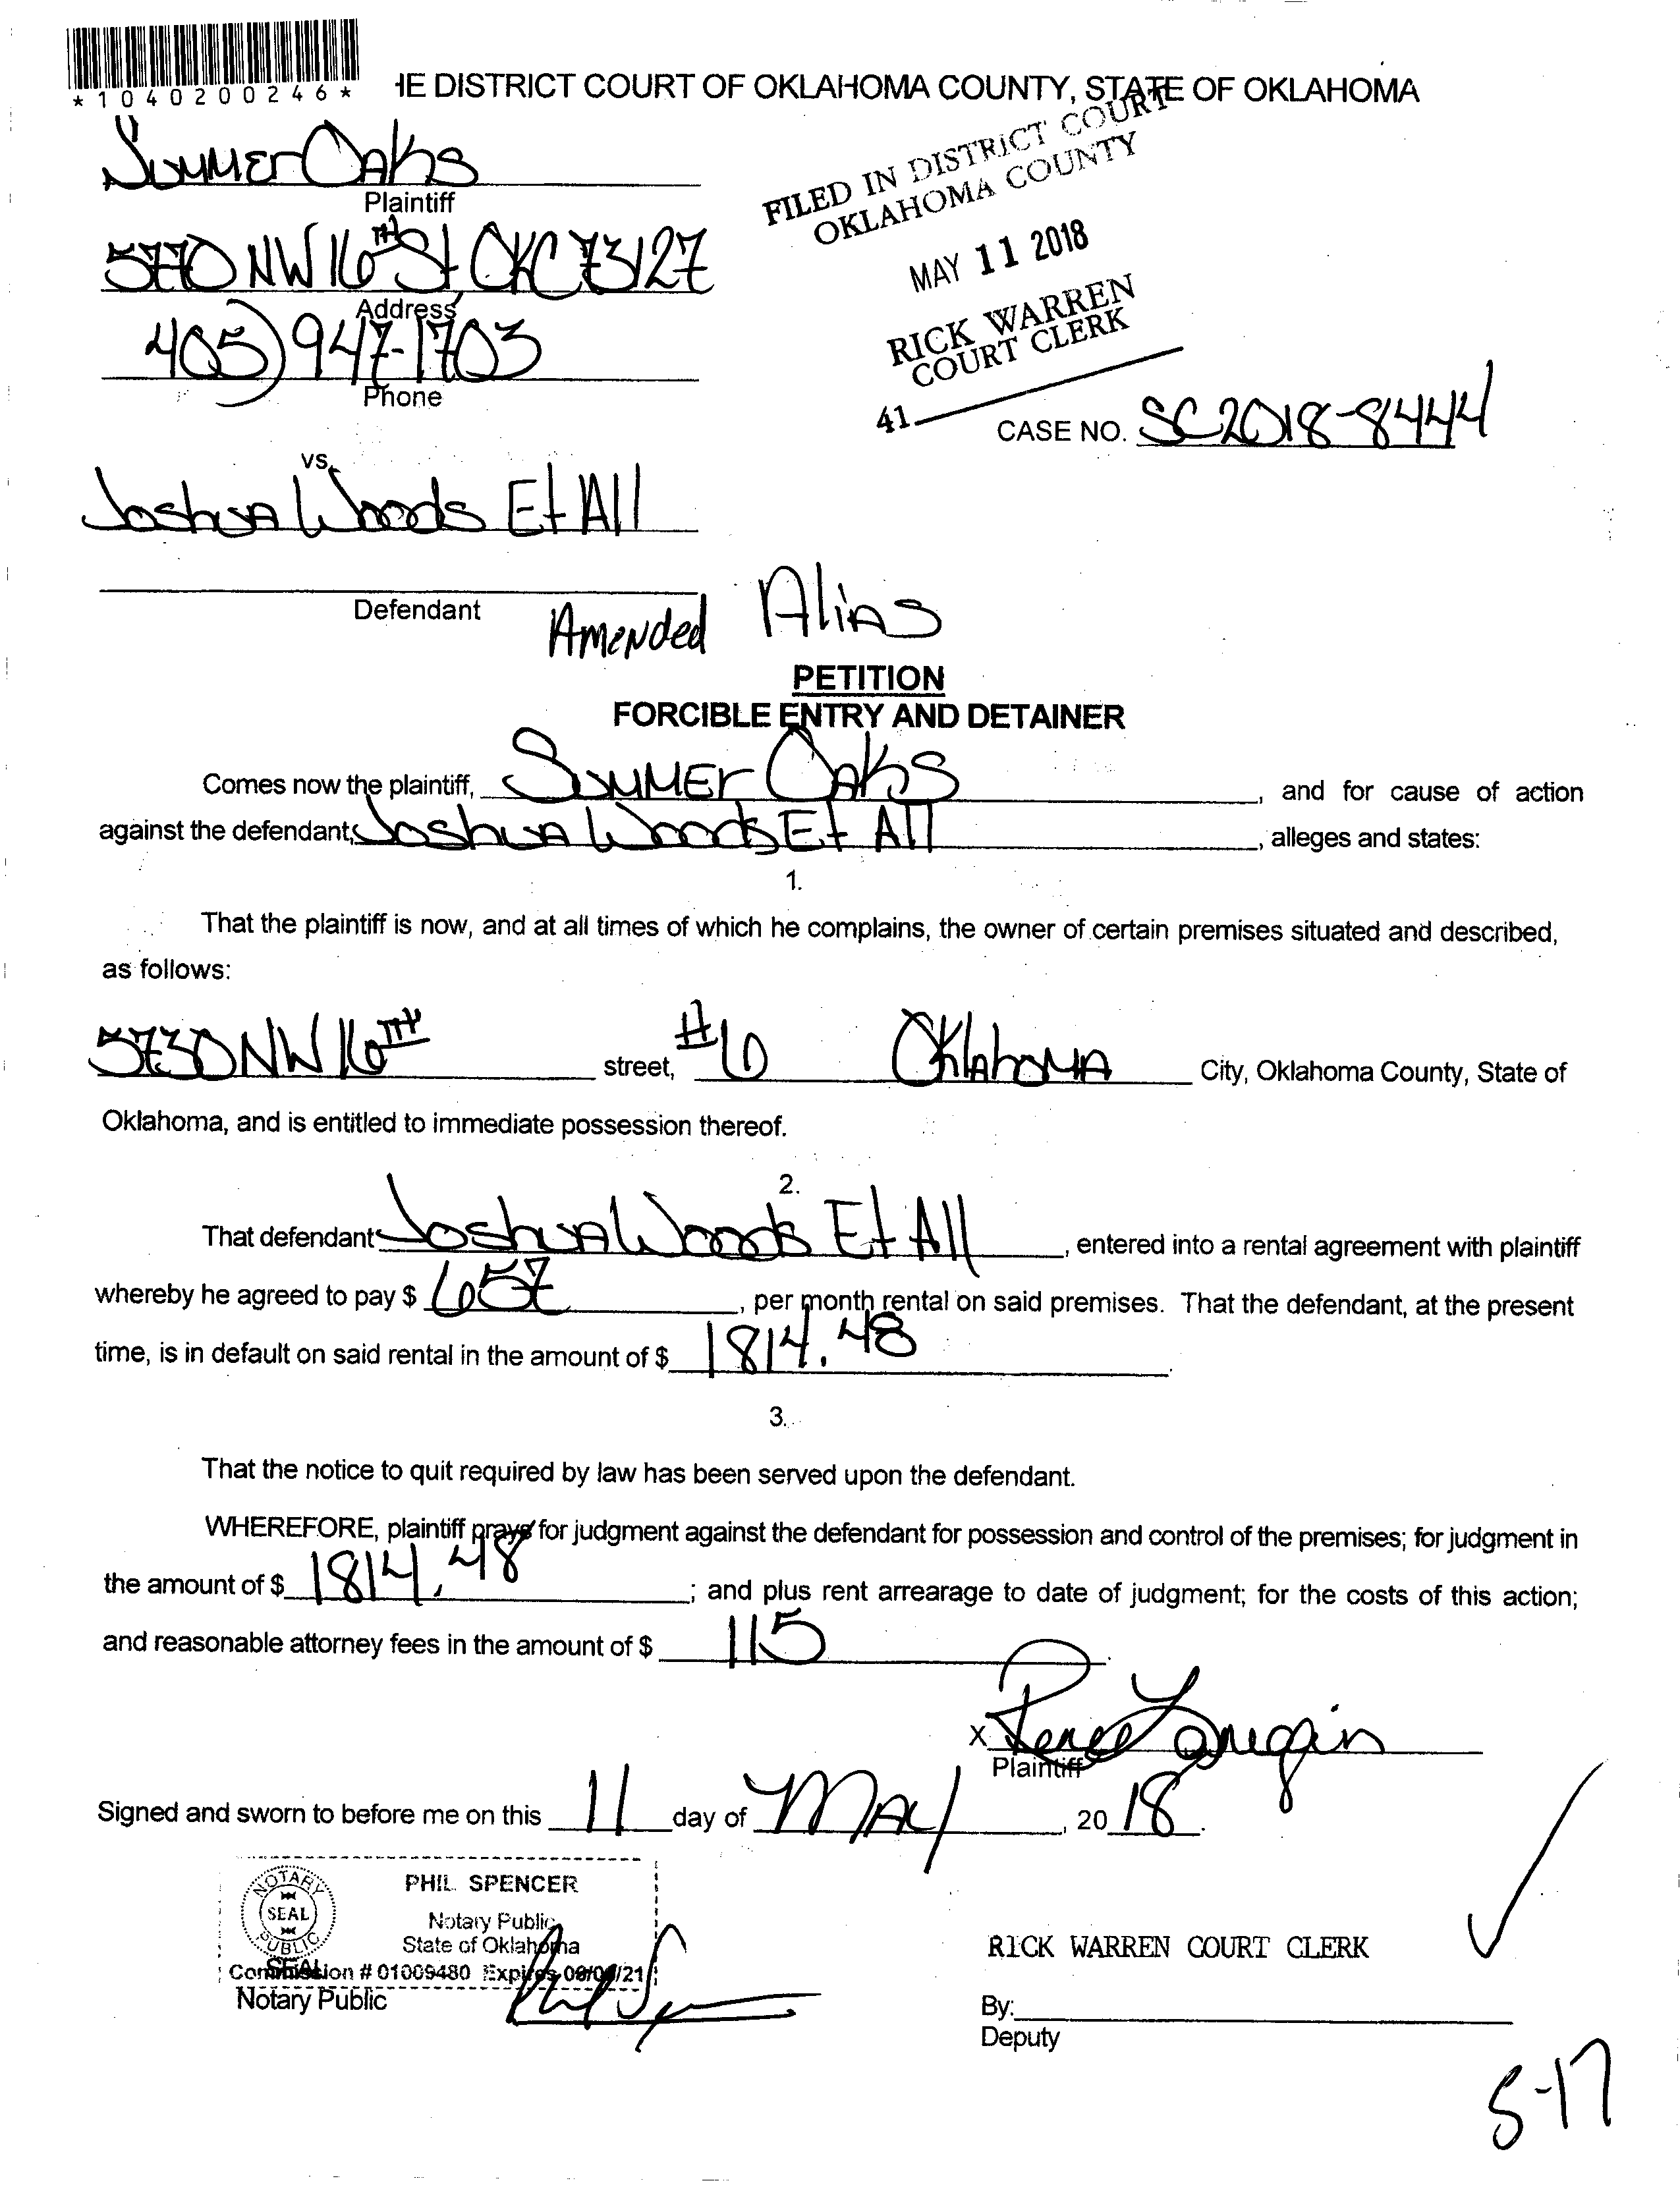 *1040200246*
HE DISTRICT COURT OF OKLAHOMA COUNTY, STATE OF OKLAHOMA
Summer Oaks
Plaintiff
FILED IN DISTRICT COURT
OKLAHOMA COUNTY
5770 NW 16TH St OKC 73127
Address
MAY 11 2018
405) 947-1703
Phone
RICK WARREN
COURT CLERK
41
CASE NO. SC2018-8444
vs.
Joshua Woods Et All
Defendant
Amended Alias
PETITION
FORCIBLE ENTRY AND DETAINER
Comes now the plaintiff, Summer Oaks, and for cause of action
against the defendant, Joshua Woods Et All, alleges and states:
1.
That the plaintiff is now, and at all times of which he complains, the owner of certain premises situated and described,
as follows:
5730 NW 16TH street, #6 Oklahoma City, Oklahoma County, State of
Oklahoma, and is entitled to immediate possession thereof.
2.
That defendant Joshua Woods Et All, entered into a rental agreement with plaintiff
whereby he agreed to pay $ 657, per month rental on said premises. That the defendant, at the present
time, is in default on said rental in the amount of $ 1814.48.
3.
That the notice to quit required by law has been served upon the defendant.
WHEREFORE, plaintiff prays for judgment against the defendant for possession and control of the premises; for judgment in
the amount of $ 1814.48; and plus rent arrearage to date of judgment; for the costs of this action;
and reasonable attorney fees in the amount of $ 115.
X Renee
Plaintiff
Signed and sworn to before me on this 11 day of MAY, 2018.
NOTARY PUBLIC SEAL
PHIL SPENCER
Notary Public
State of Oklahoma
Commission # 01009480 Expires
SEAL
Notary Public
RICK WARREN COURT CLERK
By:
Deputy
5-17